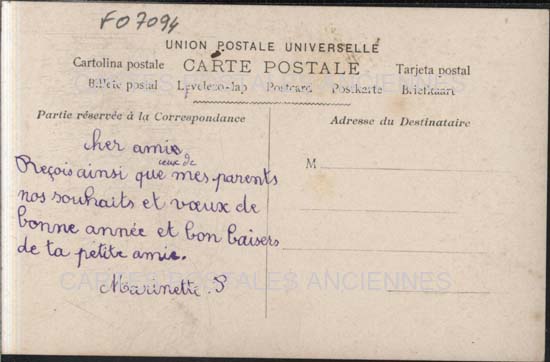 FO7094
UNION POSTALE UNIVERSELLE
Cartolina postale CARTE POSTALE Tarjeta postal
Billete postal Levelezo-lap Postcard Postkarte Briefkaart
Partie réservée à la Correspondance
Adresse du Destinataire
cher amie
ceux de
Reçois ainsi que mes parents
nos souhaits et vœux de
bonne année et bon baisers
de ta petite amie.
Marinette. S
M
CARTES POSTALES ANCIENNES
CARTES POSTALES ANCIENNES